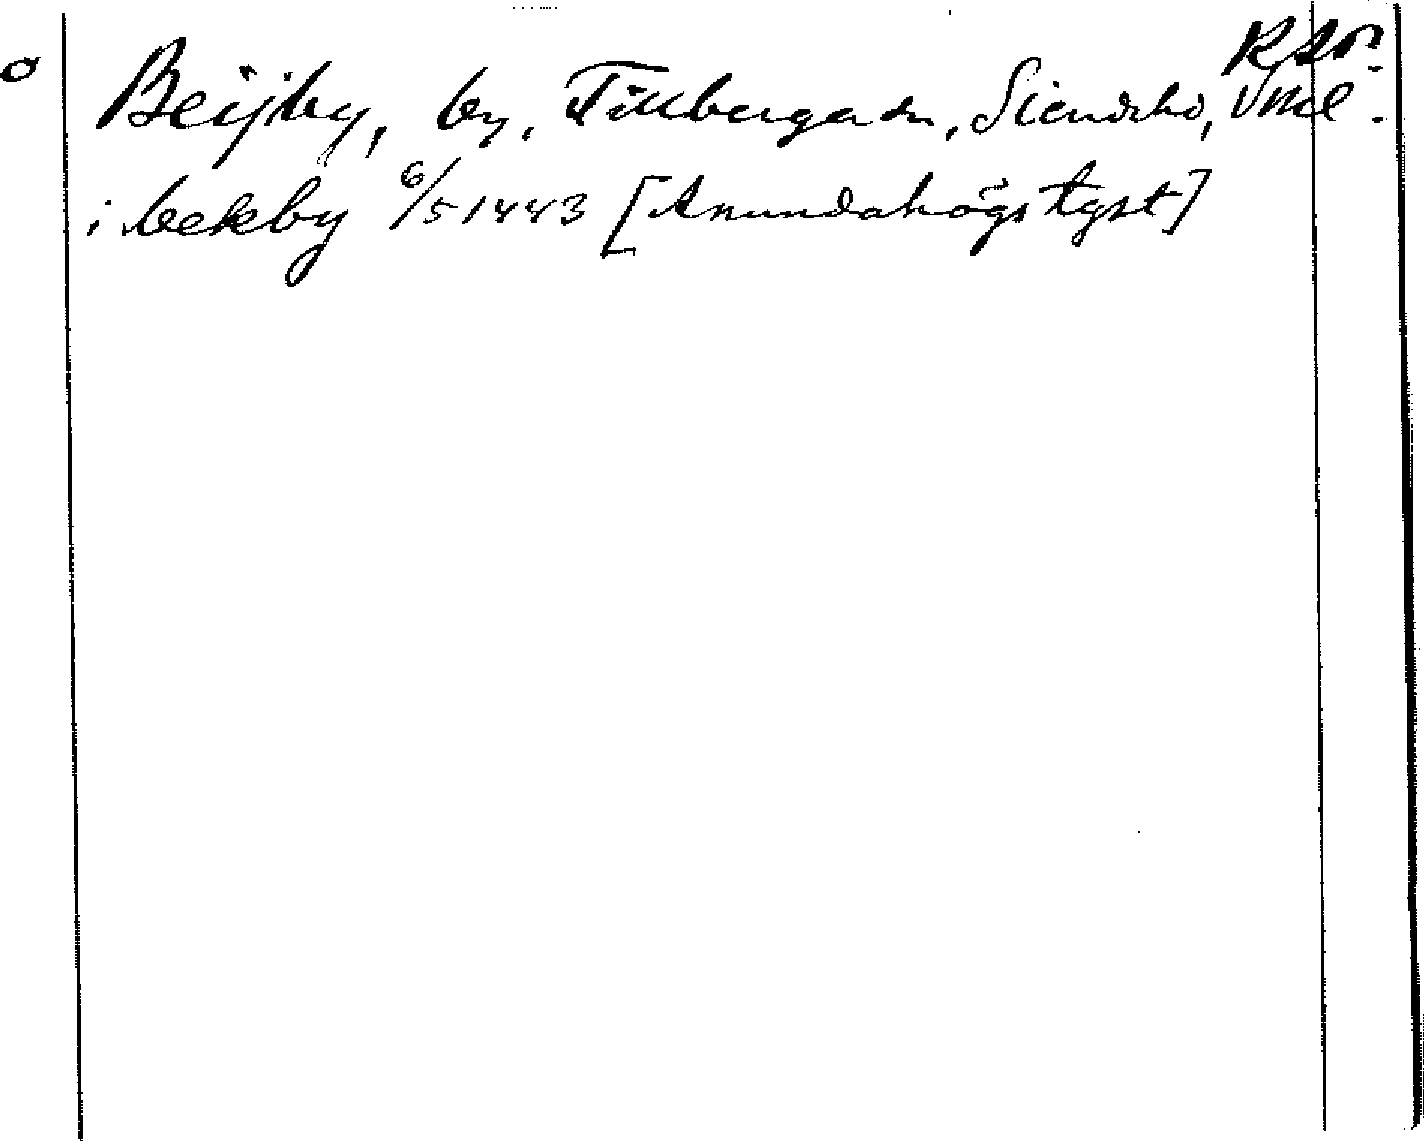 Rsv.
Beijby, by, Tillberga sn, Siende hd, Vml.
i bekby 6/5 1443 [Anundahögs tgst]